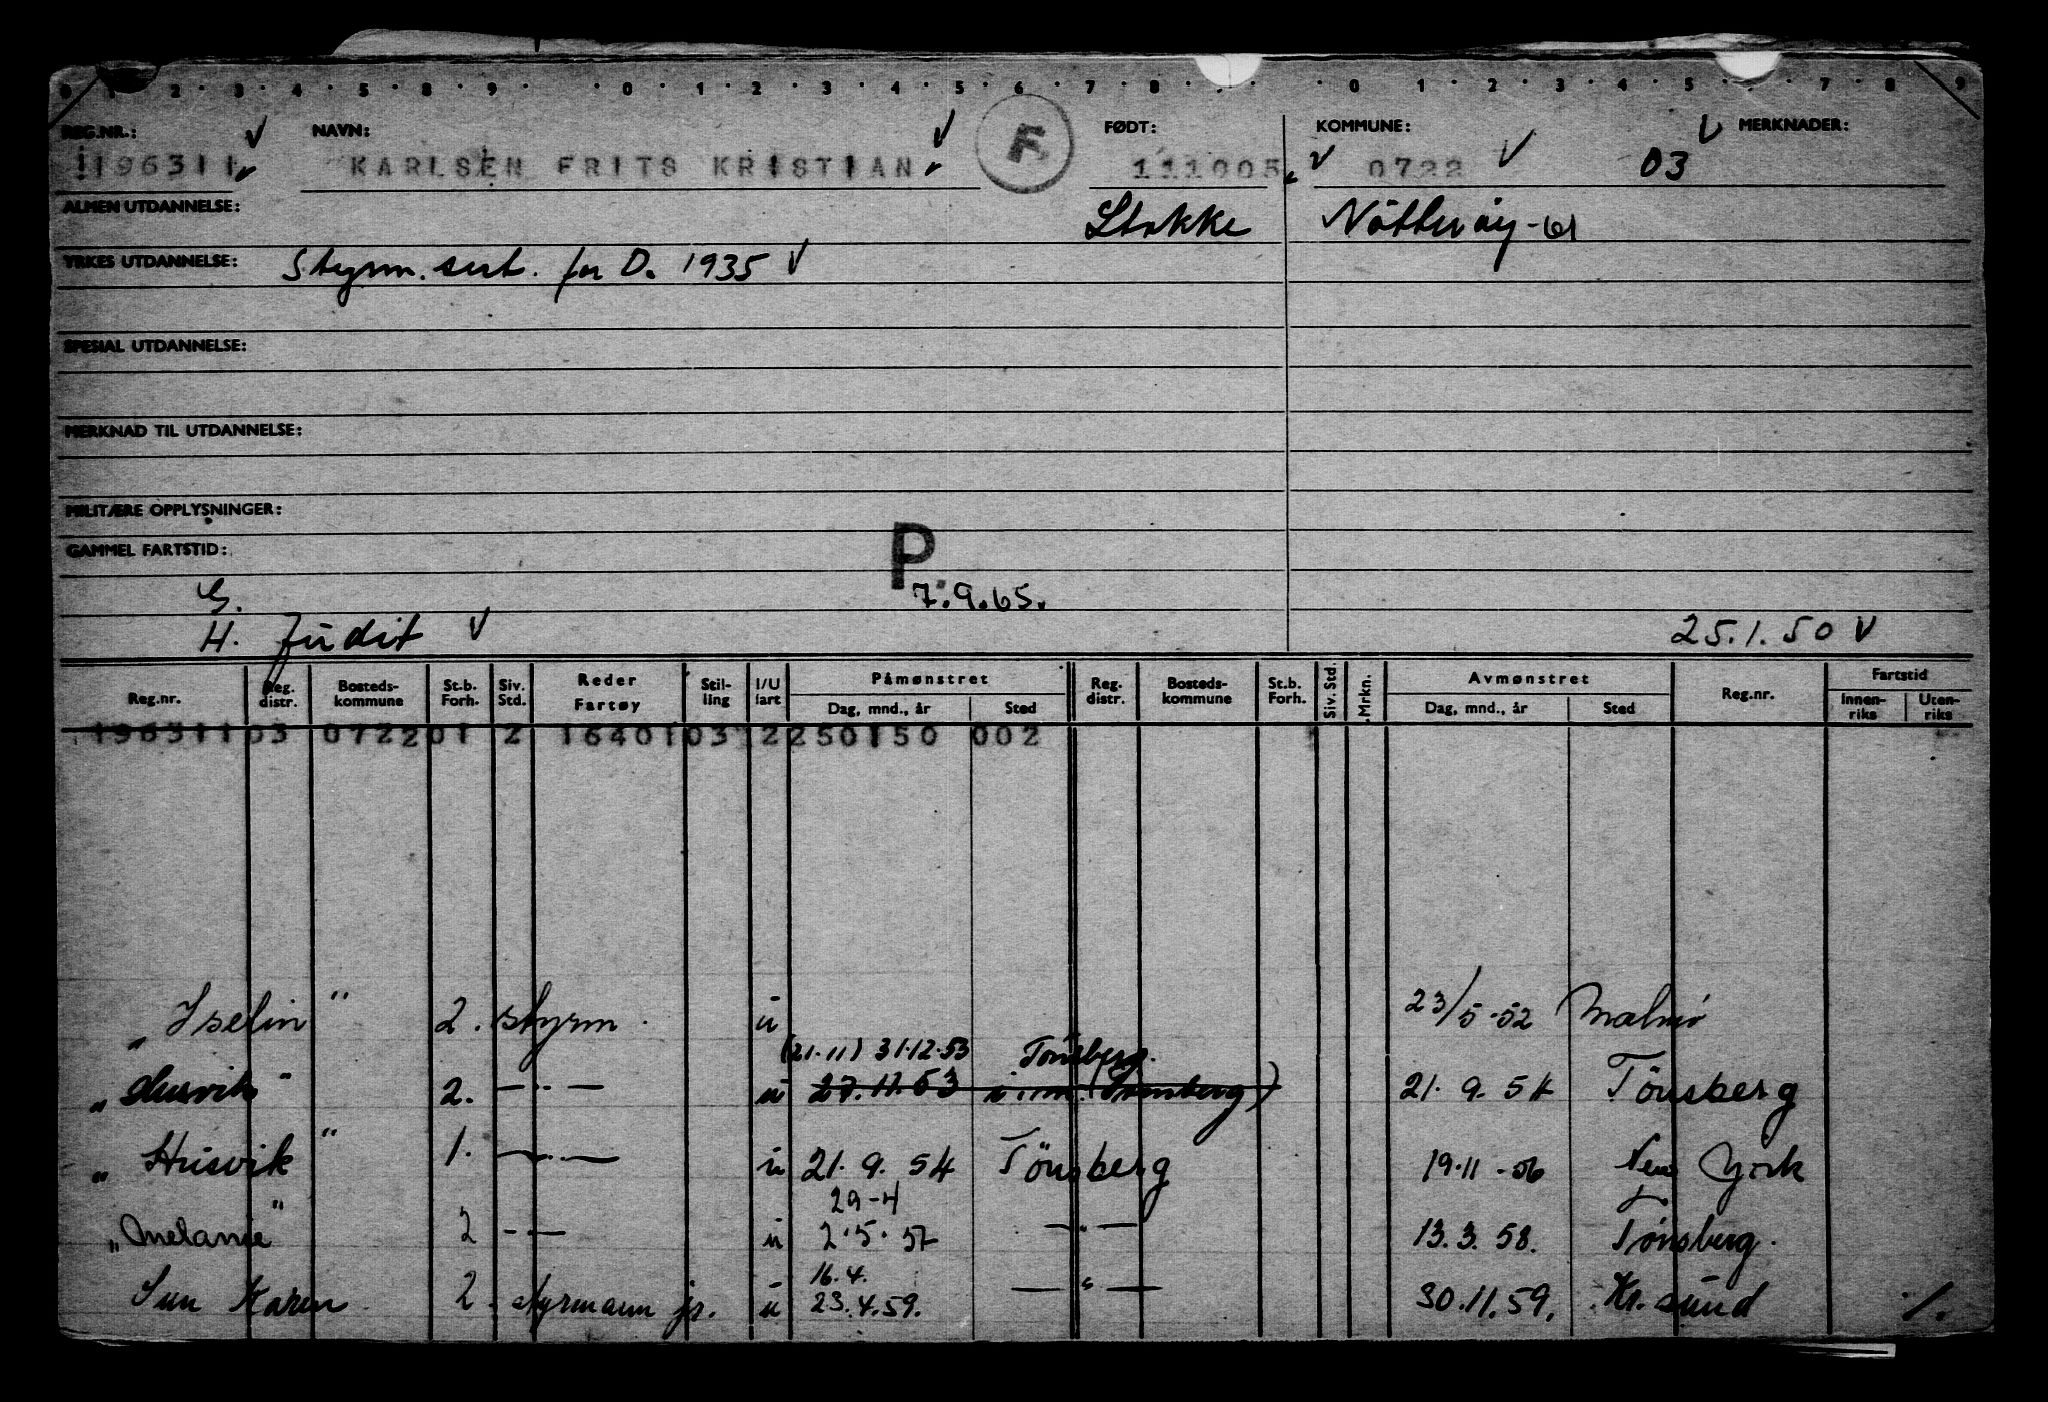 0 1 2 3 4 5 8 9 0 1 2 3 4 5 6 7 8 0 1 2 3 4 5 7 8 9
REG.NR.: NAVN: FØDT: KOMMUNE: MERKNADER:
196311 KARLSEN FRITS KRISTIAN F. 111005 0722 03
ALMEN UTDANNELSE: Stokke Nötteröy -61
YRKES UTDANNELSE: Styrm. sert. for D. 1935
SPESIAL UTDANNELSE:
MERKNAD TIL UTDANNELSE:
MILITÆRE OPPLYSNINGER:
GAMMEL FARTSTID: P
G. 7.9.65.
H. Judit 25.1.50
Reg.nr. Reg. distr. Bosteds-kommune St.b. Forh. Siv. Std. Reder Fartøy Stil-ling I/U fart Påmønstret Dag, mnd., år Sted Reg. distr. Bosteds-kommune St.b. Forh. Siv. Std. Mrkn. Avmønstret Dag, mnd., år Sted Reg.nr. Fartstid Innen-riks Uten-riks
196311 03 0722 01 2 16401 03 2 250150 002
„Iselin" 2. styrm. u 23/5-52 Malmö
(21.11) 31.12.53 Tönsberg.
„Husvik" 2. —„— u 27.11.53 (Tönsberg) 21.9.54 Tönsberg
„Husvik" 1. —„— u 21.9.54 Tönsberg 19.11-56 New York
29-4
„Melanie" 2 —„— u 2.5.57 —„— 13.3.58. Tønsberg.
16.4.
Sun Karen 2. styrmann jr. u 23.4.59. —„— 30.11.59. Kr.sund ./.